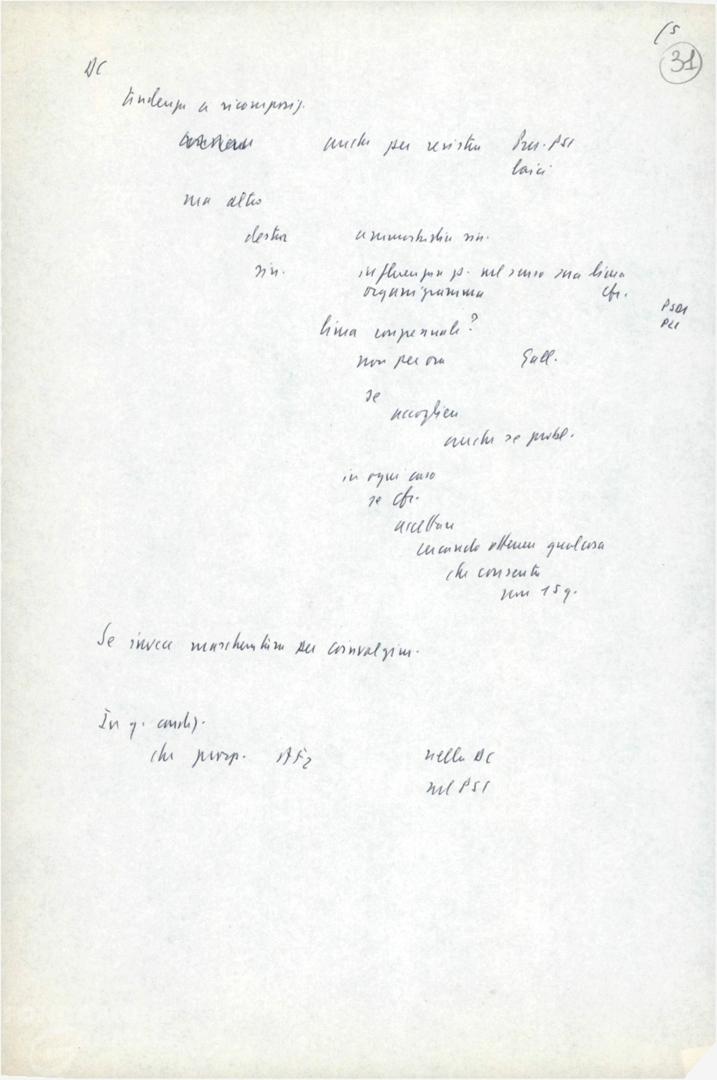 (5
31
DC
tendenza a ricomposiz.
anche per resistere Pres. PSI
laici
ma altro
destra amministra sin.
sin. influenza p. nel senso ma linea
organigramma cfr.
PSDI
PLI
linea consensuale?
non per ora Gall.
se
accogliere
anche se probl.
in ogni caso
se cfr.
accettare
cercando ottenere qualcosa
che consenta
non 15 g.
Se invece mascheratura per coinvolgim.
In q. condiz.
che prosp. nella DC
nel PSI